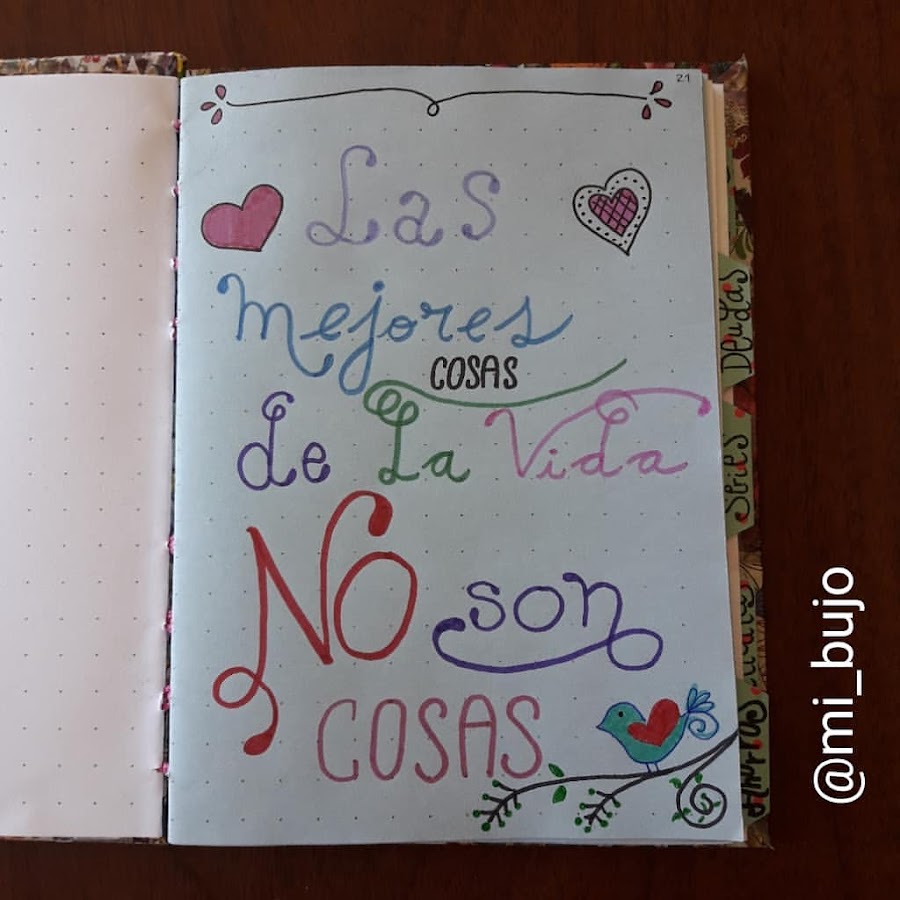 21
Las
mejores
COSAS
de La Vida
NO son
COSAS
Deudas
Series
Ahorros
@mi_bujo